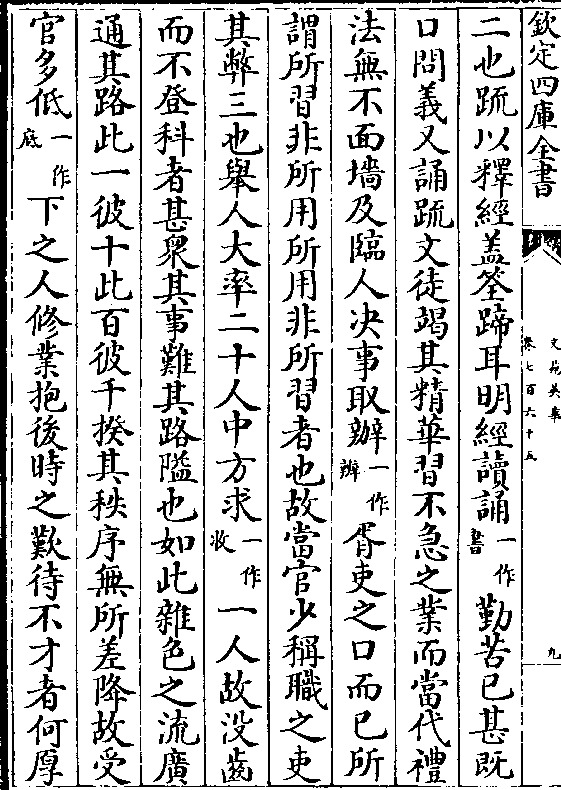 欽定四庫全書
文苑英華
卷七百六十五
九
二也䟽以釋經蓋筌蹄耳明經讀誦一作書勤苦已甚既
口問義又誦䟽文徒竭其精華習不急之業而當代禮
法無不面墻及臨人决事取辦一作辨胥吏之口而已所
謂所習非所用所用非所習者也故當官少稱職之吏
其弊三也舉人大率二十人中方求一作收一人故没齒
而不登科者甚衆其事難其路隘也如此雜色之流廣
通其路此一彼十此百彼千揆其秩序無所差降故受
官多低一作底下之人修業抱後時之歎待不才者何厚